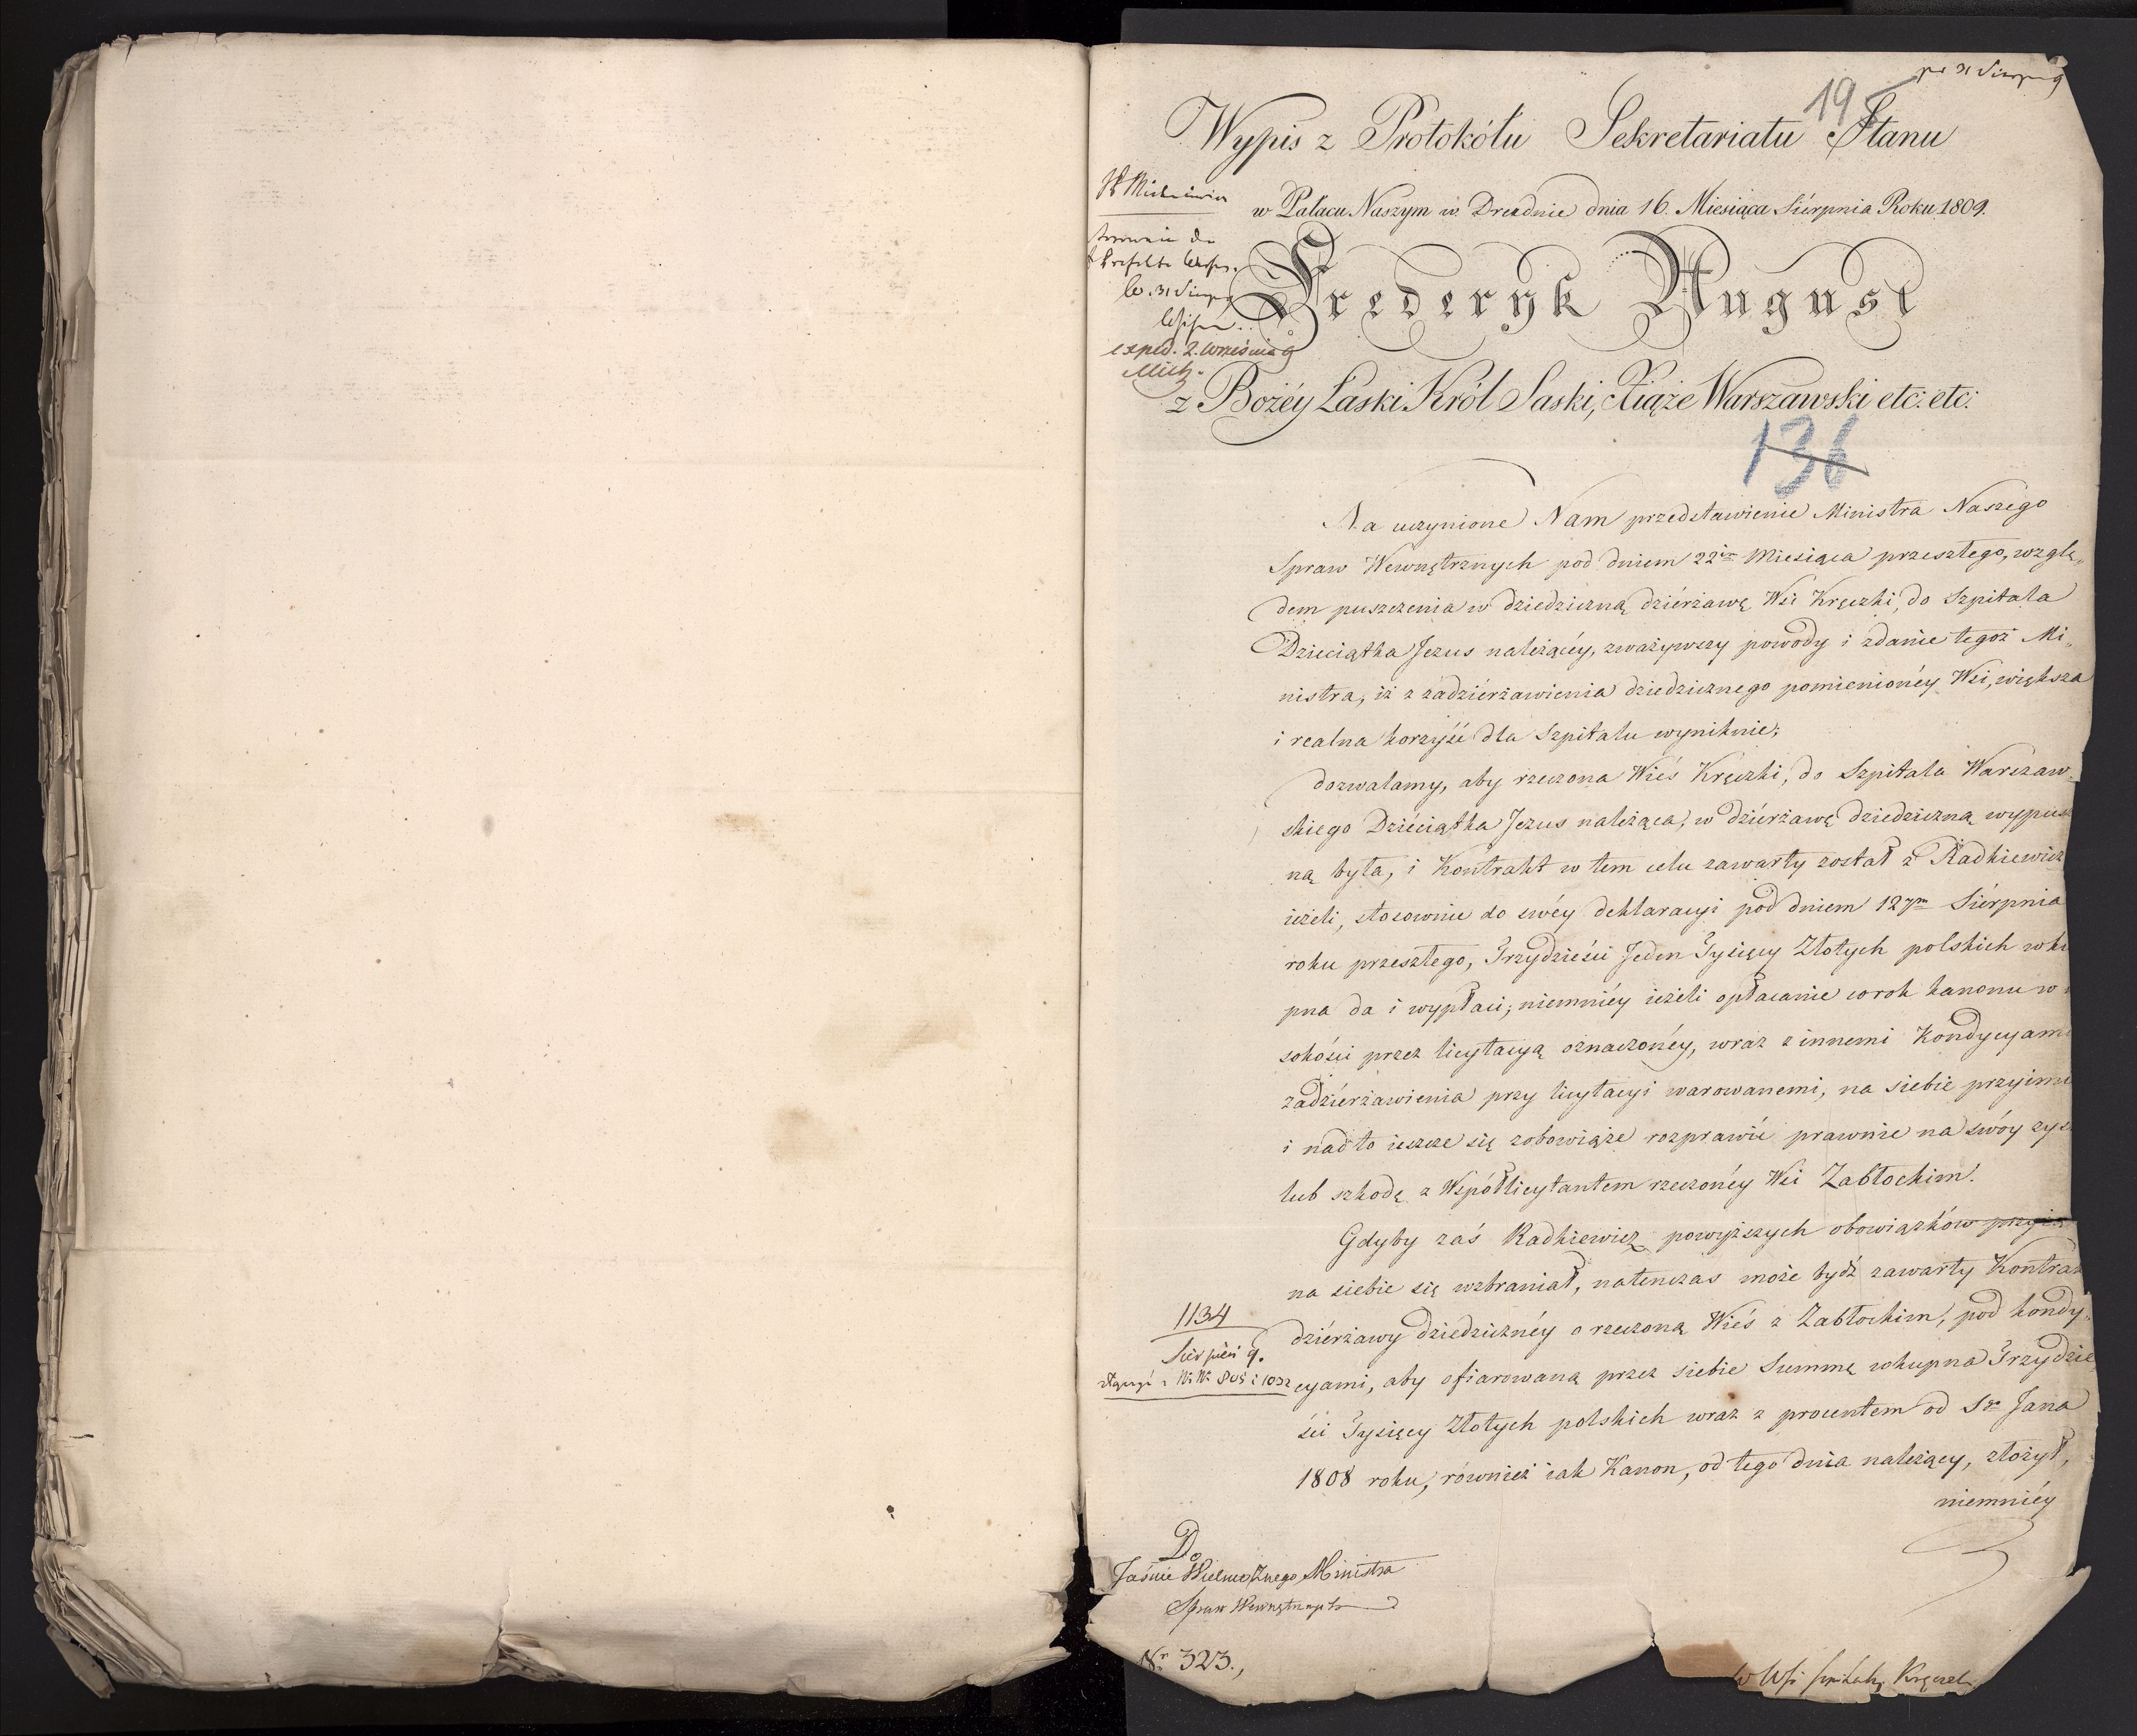 19
Wypis z Protokółu Sekretariatu Stanu
w Pałacu Naszym w Dreźdnie dnia 16. Miesiąca Siérpnia Roku 1809.
Frederyk August
exped. 2. Września 9
z Bożéy Łaski Król Saski, Xiąże Warszawski etc: etc:
136
Na uczynione Nam przedstawienie Ministra Naszego
Spraw Wewnętrznych pod dniem 22im Miesiąca przeszłego, wzglę„
dem puszczenia w dziedziczną dziérżawę Wsi Kręczki, do Szpitala
Dzieciątka Jezus należącéy, zważywszy powody i zdanie tegoż Mi„
nistra, iż z zadziérżawienia dziedzicznego pomienionéy Wsi, większa
i realna korzyść dla Szpitalu wyniknie;
dozwalamy, aby rzeczona Wieś Kręczki, do Szpitala Warszaw„
skiego Dziéciątka Jezus należąca, w dziérżawę dziedziczną wypusz
ną była, i Kontrakt w tem celu zawarty został z Radkiewicz
ieżeli, stosownie do swéy deklaracyi pod dniem 12ym Siérpnia
roku przeszłego, Trzydzieści Jeden Tysięcy Złotych polskich wku
pna da i wypłaci; niemniéy ieżeli opłacanie corok kanonu w
sokości przez licytacyą oznaczonéy, wraz z innemi Kondycyami
zadziérżawienia przy licytacyi warowanemi, na siebie przyimie
i nadto ieszcze się zobowiąże rozprawić prawnie na swóy zys
lub szkodę z Współlicytantem rzeczonéy Wsi Zabłockim.
Gdyby zaś Radkiewicz powyższych obowiązków przyiąć
na siebie się wzbraniał, natenczas może bydź zawarty Kontrak
dziérżawy dziedzicznéy o rzeczoną Wieś z Zabłockim, pod kondy„
cyami, aby ofiarowaną przez siebie Summę wkupna Trzydzie
ści Tysięcy Złotych polskich wraz z procentem od Sgo Jana
1808 roku, również iak Kanon, od tego dnia należący, złożył,
niemniéy
1134
Sierpień 9.
Do
Jaśnie Wielmożnego Ministra
Spraw Wewnętrznych
Nr. 323.,